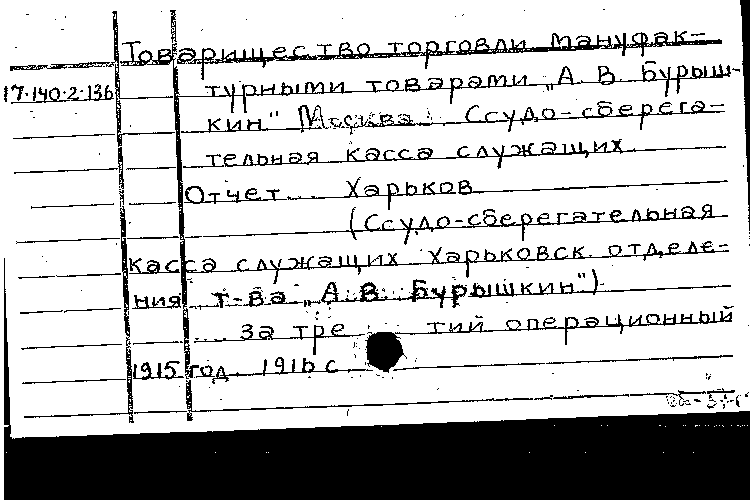 Товарищество торговли мануфак-
17.140.2.136 турными товарами „А. В. Бурыш-
кин" Москва. Ссудо-сберега-
тельная касса служащих.
Отчет... Харьков
(Ссудо-сберегательная
касса служащих Харьковск. отделе-
ния т-ва „А. В. Бурышкин")
... за тре тий операционный
1915 год. 1916 с